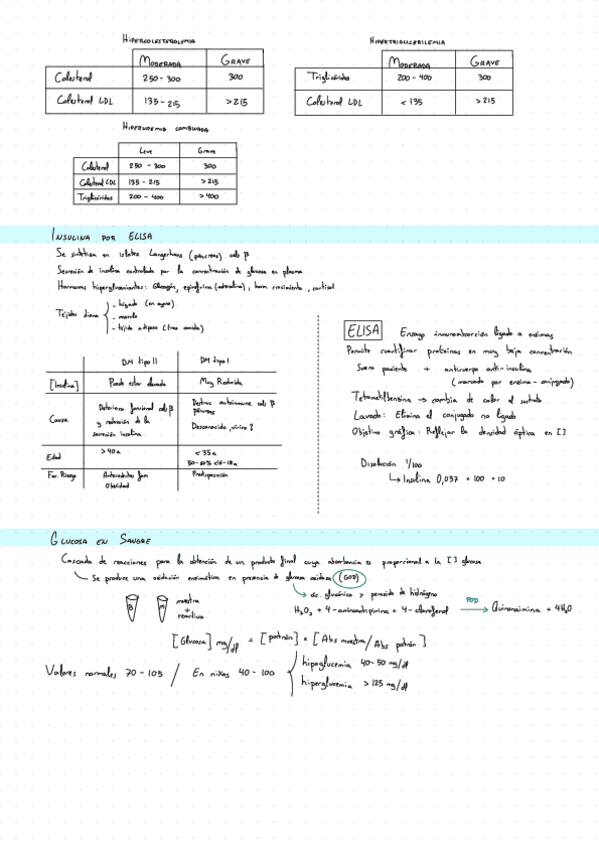 HIPERCOLESTEROLEMIA
MODERADA GRAVE
Colesterol 250 - 300 300
Colesterol LDL 135 - 215 >215
HIPERTRIGLICERILEMIA
MODERADA GRAVE
Triglicéridos 200 - 400 300
Colesterol LDL < 135 >215
HIPERLIDEMIA COMBINADA
Leve Grave
Colesterol 250 - 300 300
Colesterol LDL 135 - 215 >215
Triglicéridos 200 - 400 >400
INSULINA POR ELISA
Se sintetiza en islotes Langerhans (páncreas) cels β
Secreción de insulina controlada por la concentración de glucosa en plasma
Hormonas hiperglucemiantes: Glucagón, epinefrina (adrenalina), horm crecimiento, cortisol
Tejidos diana
- hígado
- músculo
- tejido adiposo
DM tipo II DM tipo I
[Insulina] Puede estar elevada Muy Reducida
Causa Deterioro funcional cels β Destruc autoinmune cels β
y reducción de la páncreas
secreción insulina Desconocido, vírico?
Edad > 40a < 35a
Fac. Riesgo Antecedentes fam Predisposición
Obesidad
ELISA Ensayo inmunoabsorción ligado a enzimas
Permite cuantificar proteínas en muy baja concentración
Suero paciente + anticuerpo anti-insulina
(marcado por enzima - conjugado)
Tetrametilbenzina → cambia de color el sustrato
Lavado: Elimina el conjugado no ligado
Objetivo gráfica: Reflejar la densidad óptica en [ ]
Disolución 1/100
↳ Insulina 0,097 × 100 = 10
GLUCOSA EN SANGRE
Cascada de reacciones para la obtención de un producto final cuya absorbancia es proporcional a la [ ] glucosa
Se produce una oxidación enzimática en presencia de glucosa oxidasa (GOD)
ác. glucónico y peróxido de hidrógeno
B M muestra
+
reactivo
H₂O₂ + 4-aminoantipirina + 4-clorofenol POD → Quinonaimina + 4H₂O
[Glucosa] mg/dl = [patrón] × [Abs muestra / Abs patrón]
Valores normales 70 - 105 / En niños 40 - 100
hipoglucemia 40-50 mg/dl
hiperglucemia > 125 mg/dl